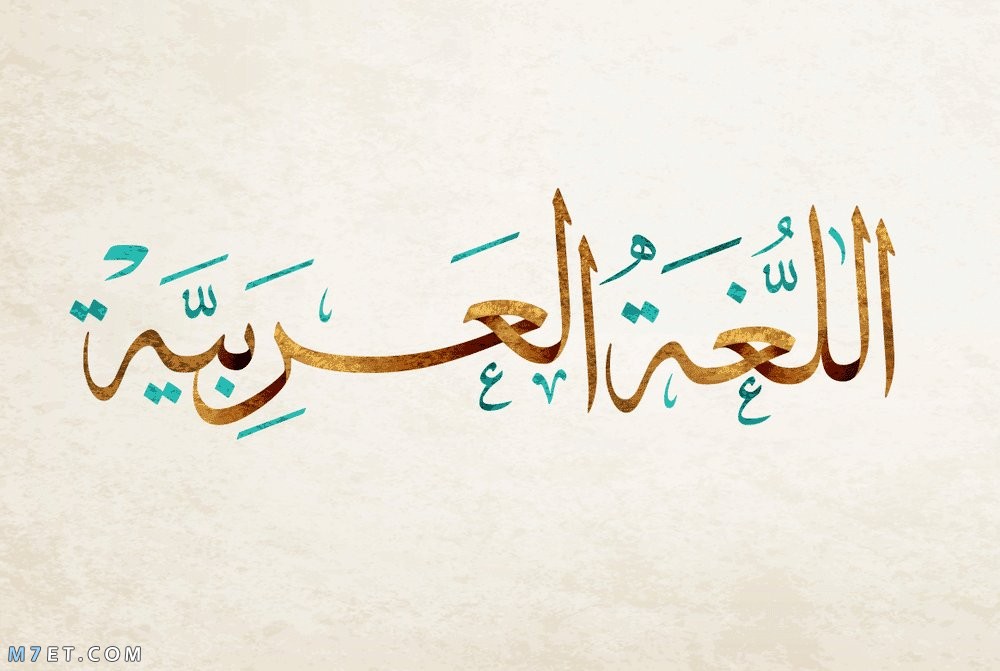 اللُّغَةُ العَرَبِيَّةُ
M7ET.COM